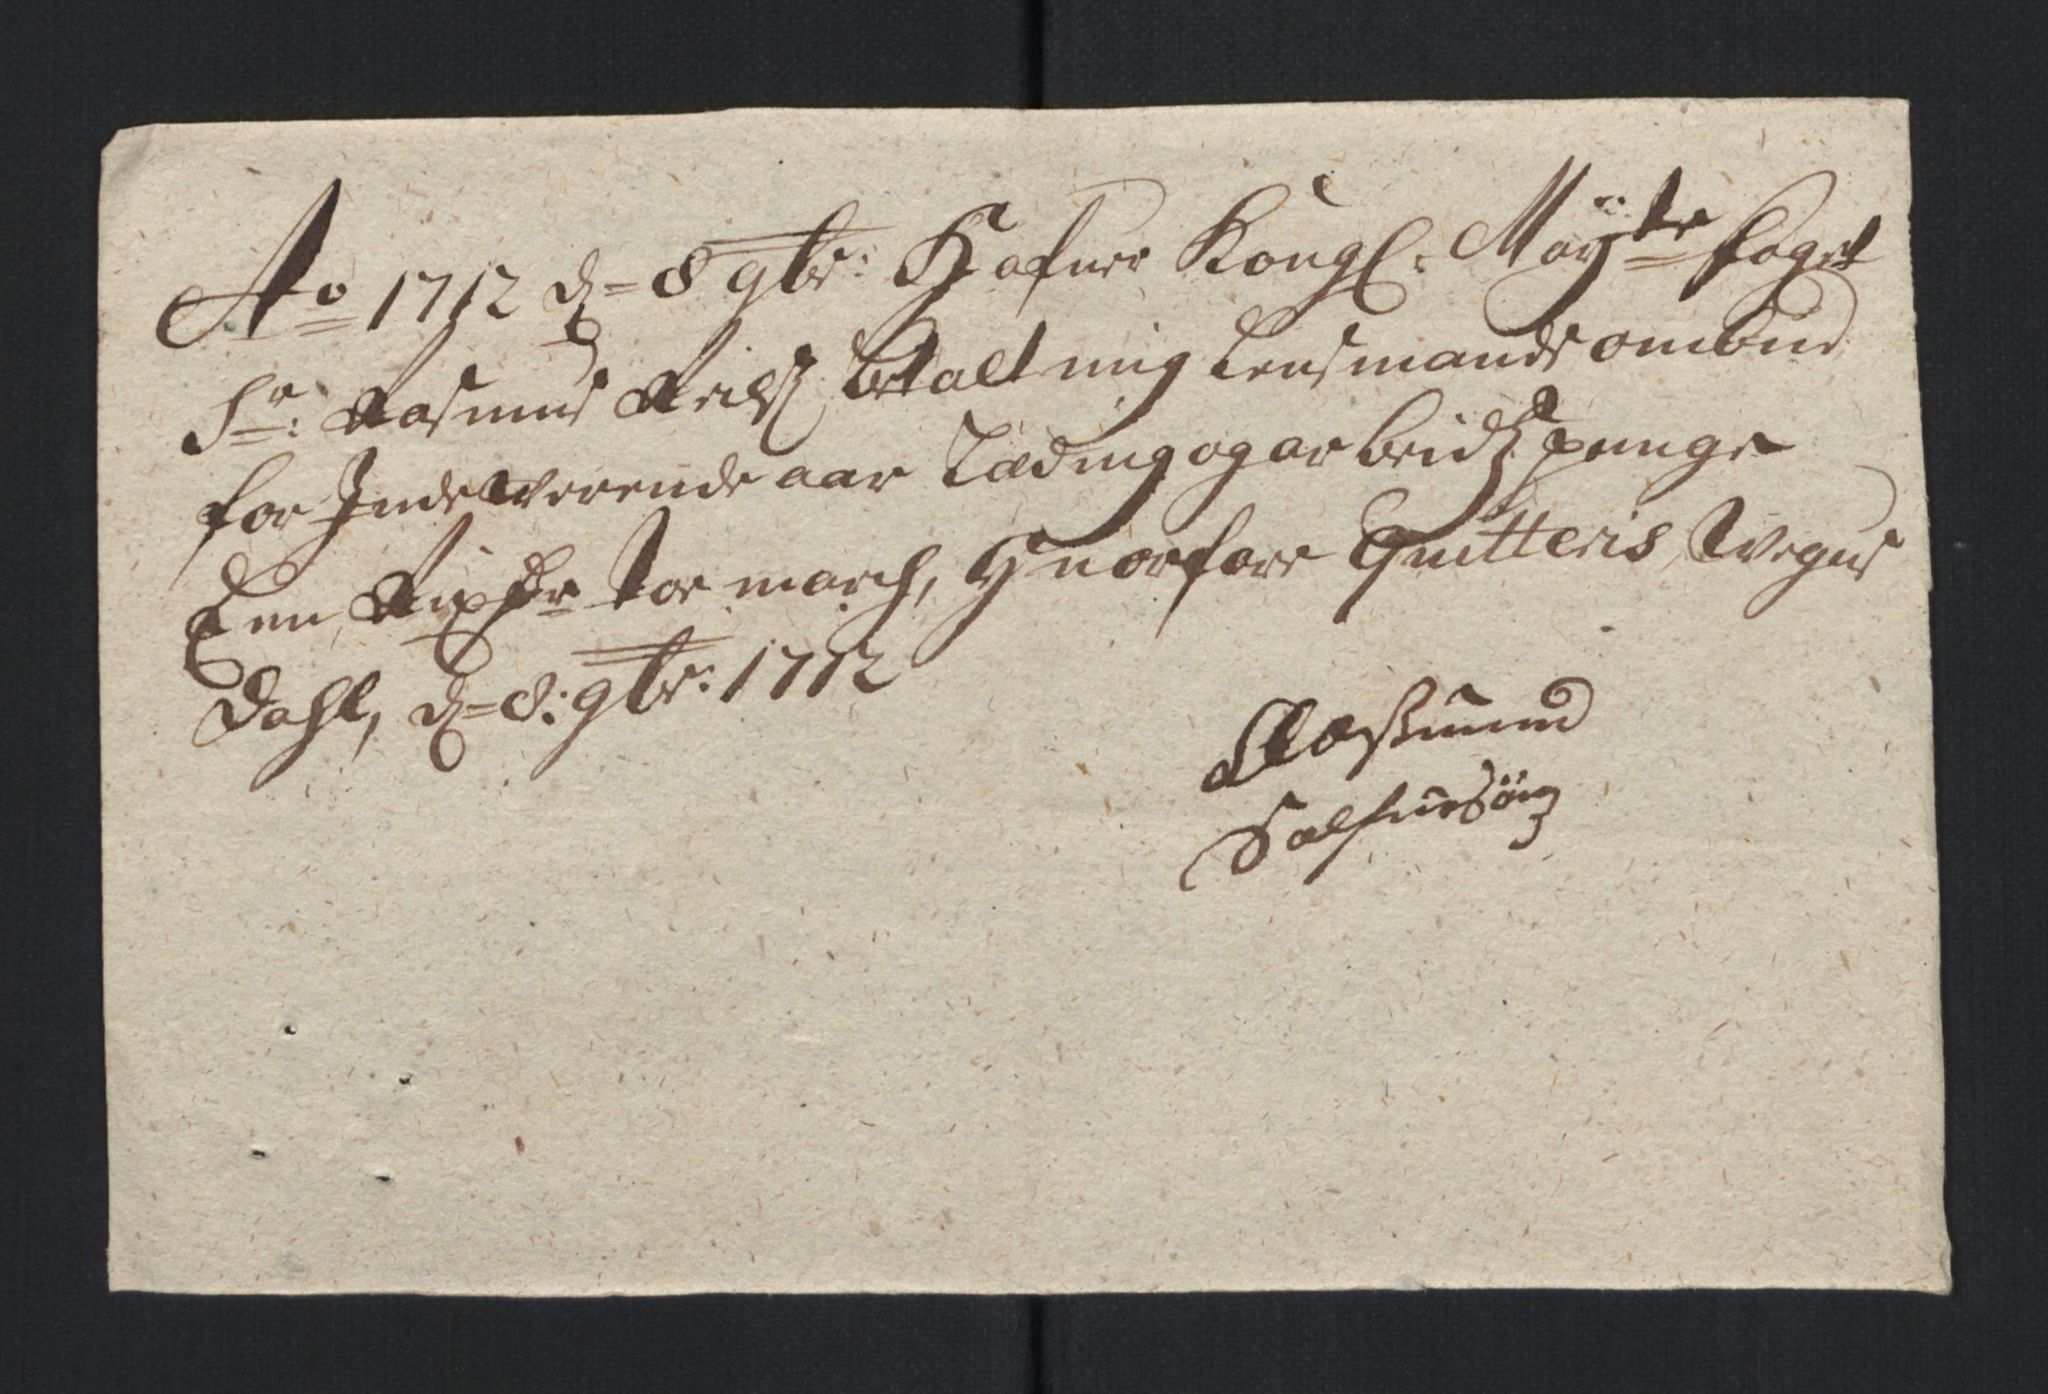 Ao 1712 d= 8 9br: Hafuer Kongl: May:te foget
Sr: Rasmus Neils: betalt mig Lensmands ombud
for Indeverende aar Læding og arbeids penge
Een Rixdr toe march, Huorfore Quitteris Wegus
Dahl, d= 8: 9br: 1712
Aassmund
Salfuesön